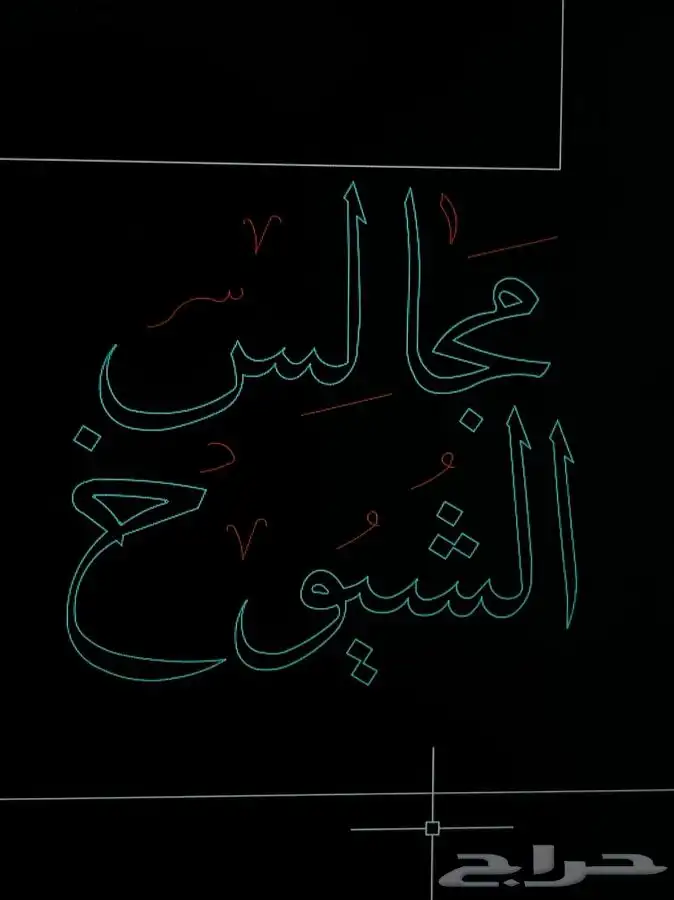 مجالس
الشيوخ
حراج